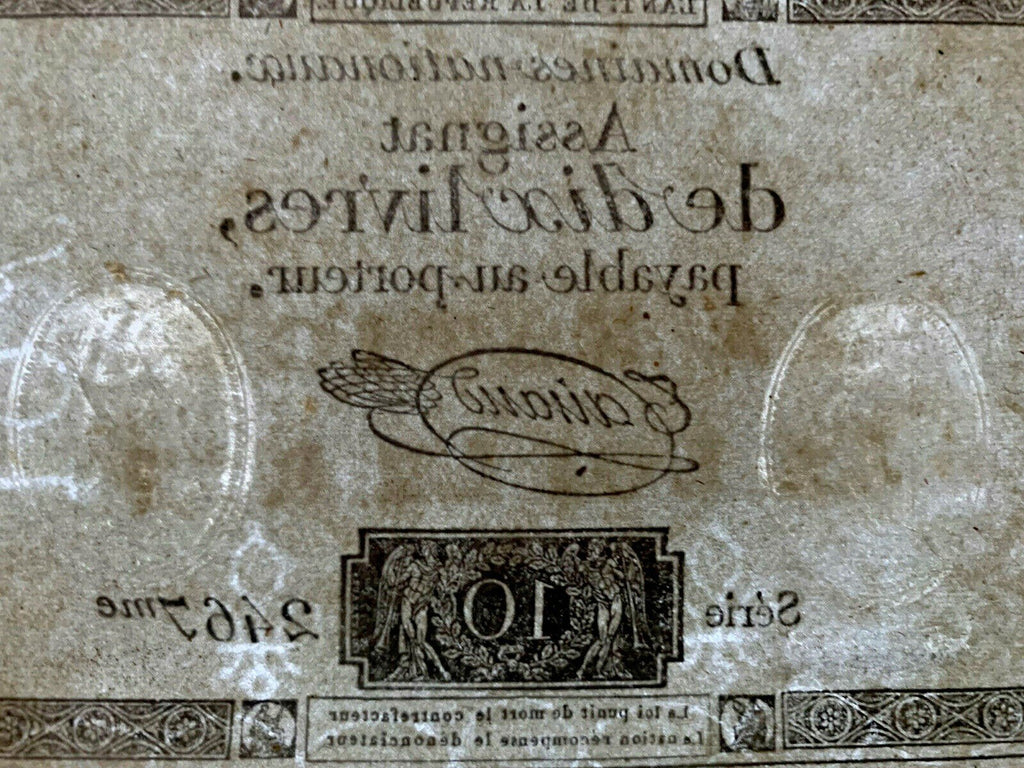 L'AN 1.er DE LA RÉPUBLIQUE.
Domaines nationaux.
Assignat
de dix livres,
payable au porteur.
Taisaud
10
Série 2467me
La loi punit de mort le contrefacteur
La nation récompense le dénonciateur